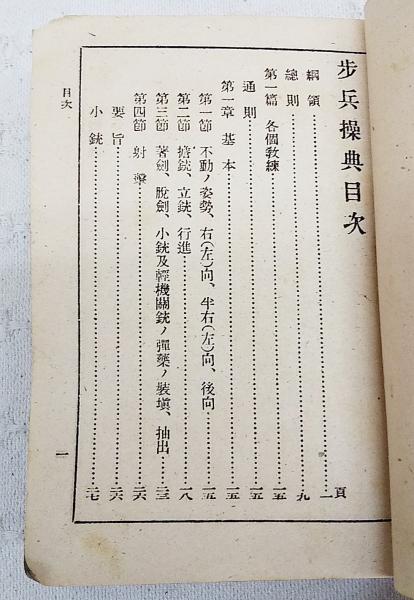 歩兵操典目次
頁
綱領……一
總則……九
第一篇 各個教練……一五
通則……一五
第一章 基本……一五
第一節 不動ノ姿勢、右(左)向、半右(左)向、後向……一五
第二節 擔銃、立銃、行進……一八
第三節 著劍、脫劍、小銃及輕機關銃ノ彈藥ノ裝塡、抽出……二三
第四節 射擊……二六
要旨……二六
小銃……二七
目次
一